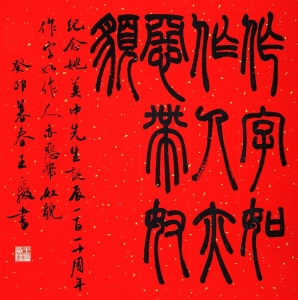 作字如
作人亦
恶带奴
貌
纪念姚奠中先生诞辰一百一十周年
作字如作人亦恶带奴貌
癸卯暮春王薇书